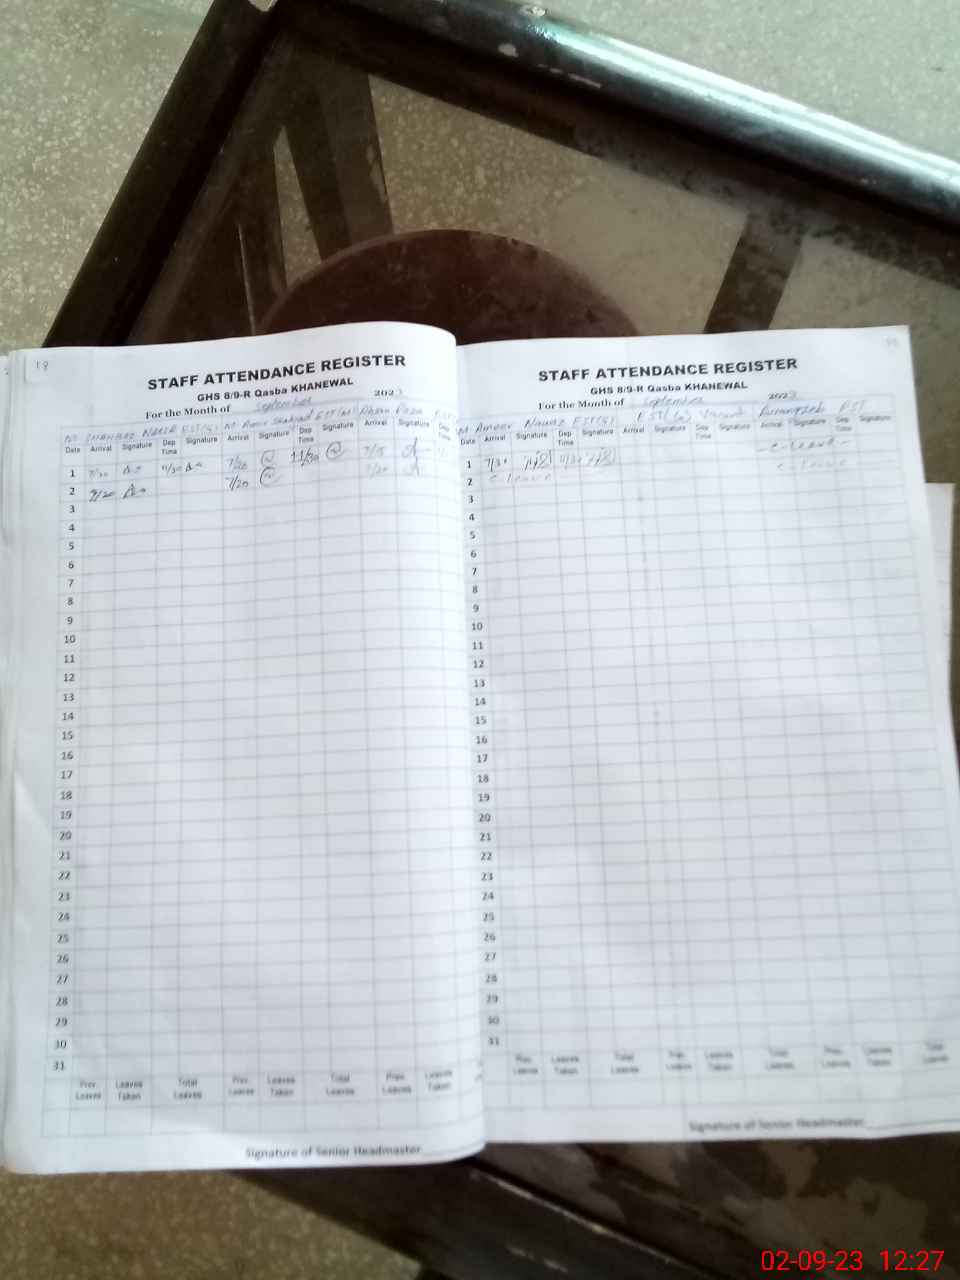 18
STAFF ATTENDANCE REGISTER
GHS 8/9-R Qasba KHANEWAL
For the Month of September 2023
Date Arrival Signature Dep Time Signature Arrival Signature Dep Time Signature Arrival Signature Dep Time
1 7/30 11/30 7/20 11/30 7/15
2 7/20 7/20 7/20
3
4
5
6
7
8
9
10
11
12
13
14
15
16
17
18
19
20
21
22
23
24
25
26
27
28
29
30
31
Prev. Leaves Leaves Taken Total Leaves Prev. Leaves Leaves Taken Total Leaves Prev. Leaves Leaves Taken
Signature of Senior Headmaster
STAFF ATTENDANCE REGISTER
GHS 8/9-R Qasba KHANEWAL
For the Month of September 2023
M. Ameer Nawaz EST(S) EST( ) Vacant Aurangzeb PST
Date Arrival Signature Dep Time Signature Arrival Signature Dep Time Signature Arrival Signature Dep Time Signature
- C-Leave -
1 7/30 11/30 C-Leave
2 C-Leave
3
4
5
6
7
8
9
10
11
12
13
14
15
16
17
18
19
20
21
22
23
24
25
26
27
28
29
30
31
Prev. Leaves Leaves Taken Total Leaves Prev. Leaves Leaves Taken Total Leaves Prev. Leaves Leaves Taken Total Leaves
Signature of Senior Headmaster
02-09-23 12:27